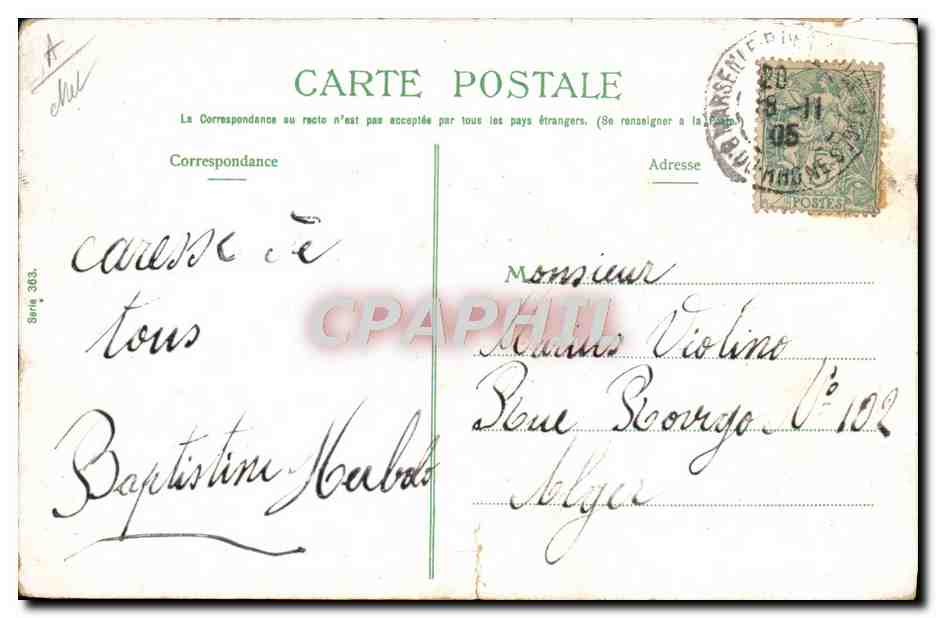 A
CARTE POSTALE
La Correspondance au recto n'est pas acceptée par tous les pays étrangers. (Se renseigner a la Poste.)
Correspondance
Adresse
20
8-11
05
MARSEILLE
B. DU RHONE
POSTES
caresse à
tous
Baptistin
Monsieur
Marius Violino
Rue Rovigo N° 102
Alger
Serie 363.
CPAPHIL